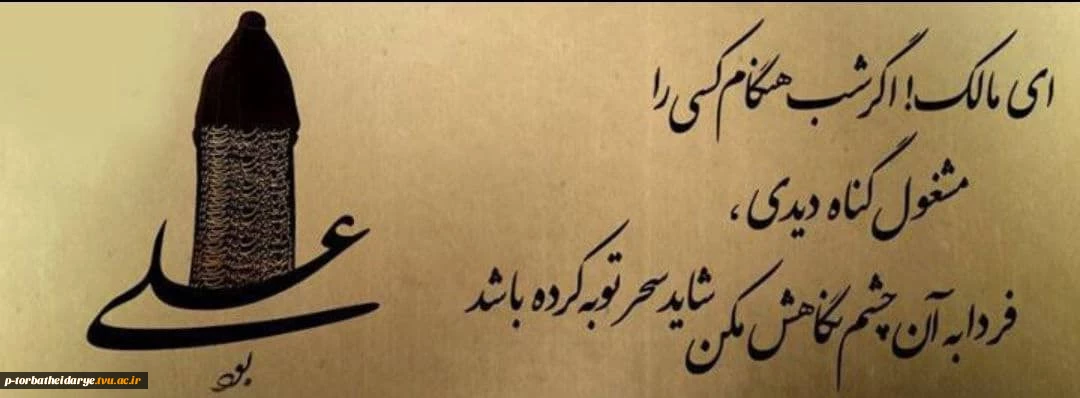 ای مالک! اگر شب هنگام کسی را
مشغول گناه دیدی،
فردا به آن چشم نگاهش مکن شاید سحر توبه کرده باشد
علی
p-torbatheidarye.tvu.ac.ir